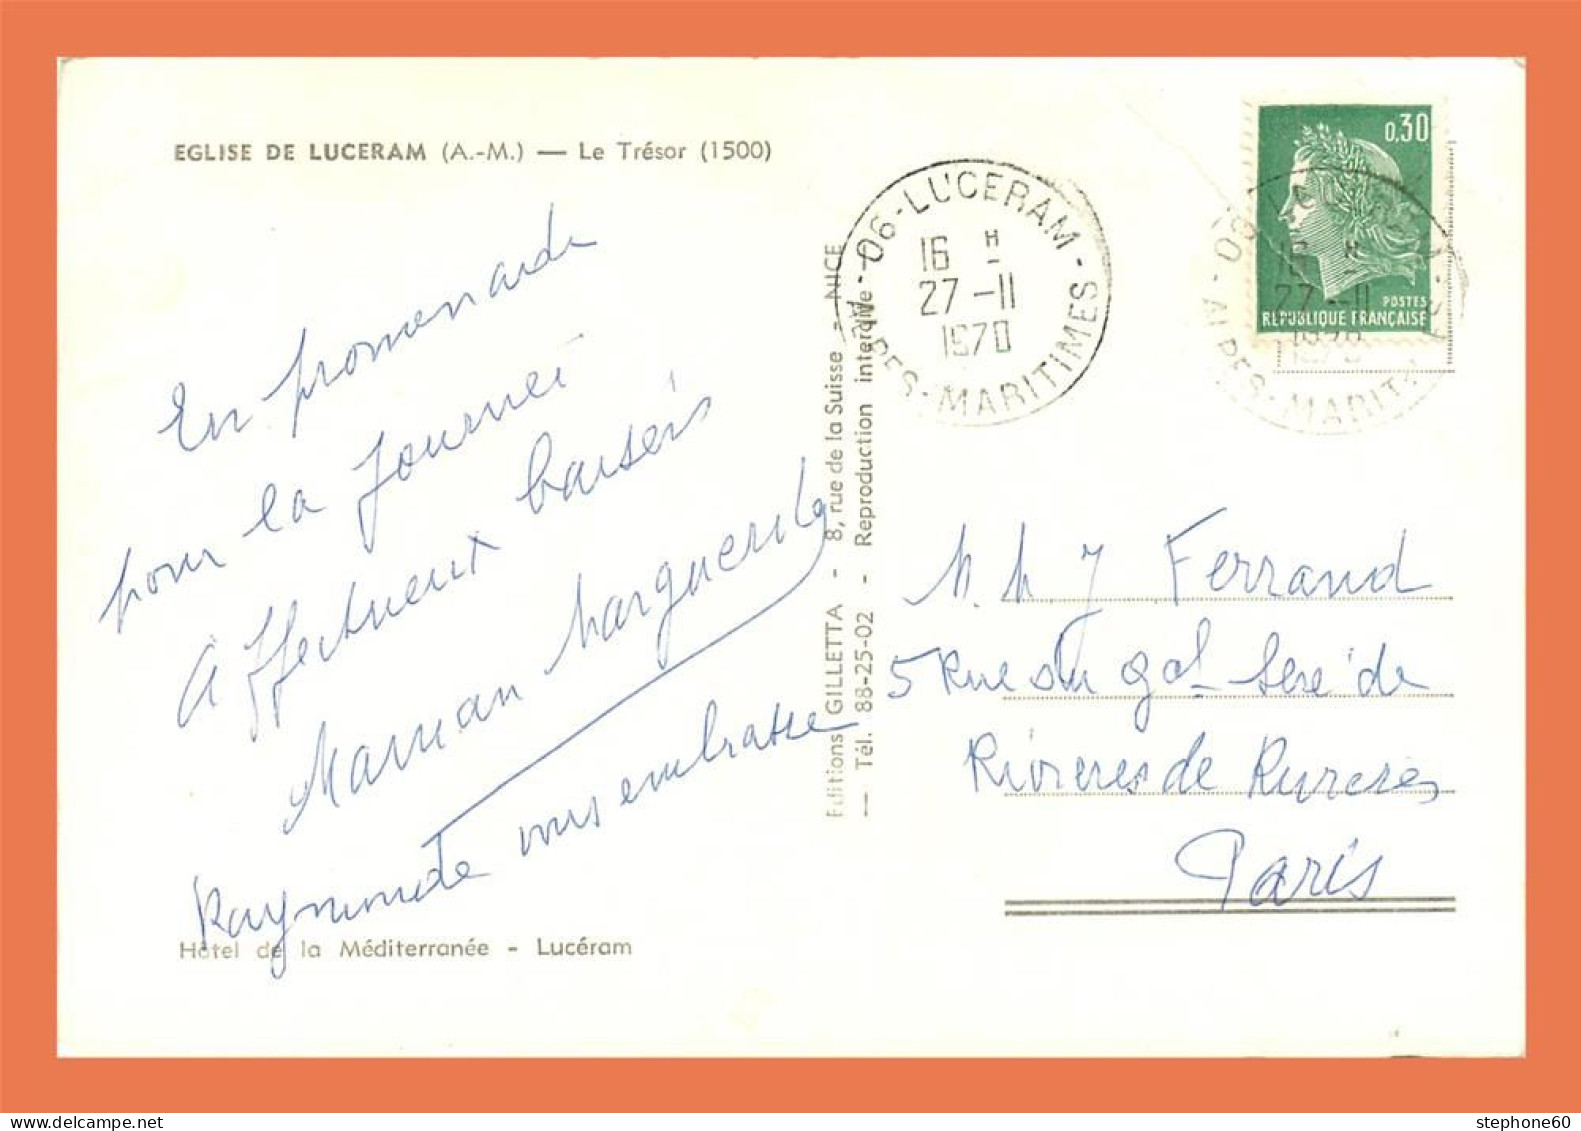 EGLISE DE LUCERAM (A.-M.) — Le Trésor (1500)
En promenade
pour la journeé
Affectueux baisers
Maman Marguerite
Raymonde vous embrasse
Hôtel de la Méditerranée - Lucéram
Editions GILLETTA - 8, rue de la Suisse - NICE
— Tél. 88-25-02 - Reproduction interdite —
06-LUCERAM-
16 H
27-11
1970
ALPES-MARITIMES
0,30
POSTES
REPUBLIQUE FRANÇAISE
16 H
27-11
1970
M. M J Ferrand
5 Rue du gal Seré de
Rivieres de Rivieres
Paris
stephone60